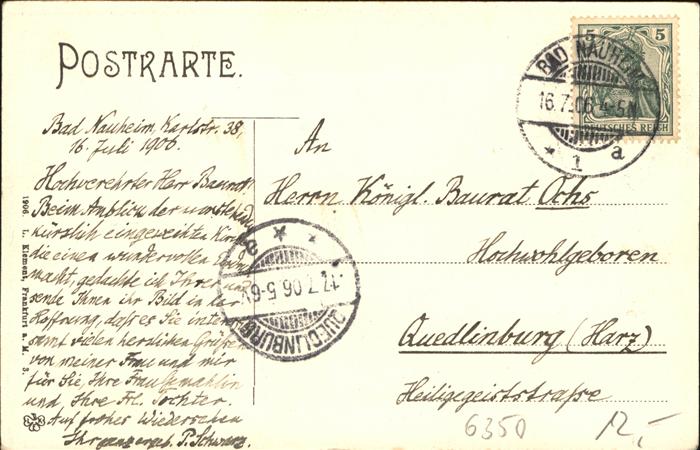 POSTKARTE.
5 5
DEUTSCHES REICH
BAD NAUHEIM
16.7.06 4-5N
* 1 a
Bad Nauheim, Karlstr. 38,
16. Juli 1906.
Hochverehrter Herr Baurat!
Beim Anblick der
kürzlich eingeweihten Kirche,
die einen wundervollen
macht, gedachte ich Ihrer und
sende Ihnen ihr Bild in der
Hoffnung, daß es Sie
samt vielen herzlichen Grüßen
von meiner Frau und mir
für Sie, Ihre Frau Gemahlin
und Ihre Frl. Tochter.
Auf frohes Wiedersehen
Ihr ganz ergeb. P. Schwarz.
An
Herrn Königl. Baurat Ochs
Hochwohlgeboren
Quedlinburg (Harz)
Heiligegeiststraße
QUEDLINBURG
17.7.06.5-6V
* * e
1906. L. Klement, Frankfurt a. M. 3.
6350
12,-